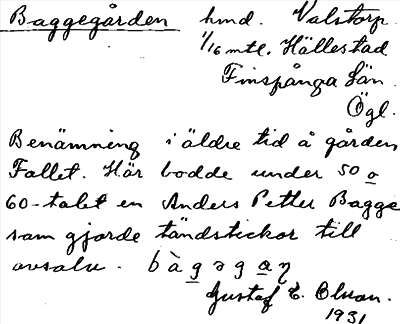 Baggegården hmd. Valstorp.
1/16 mtl. Hällestad
Finspånga län.
Ögl.
Benämning i äldre tid å gården
Fallet. Här bodde under 50 o
60-talet en Anders Petter Bagge
som gjorde tändstickor till
avsalu. bàgəgan
Gustaf E. 
1931